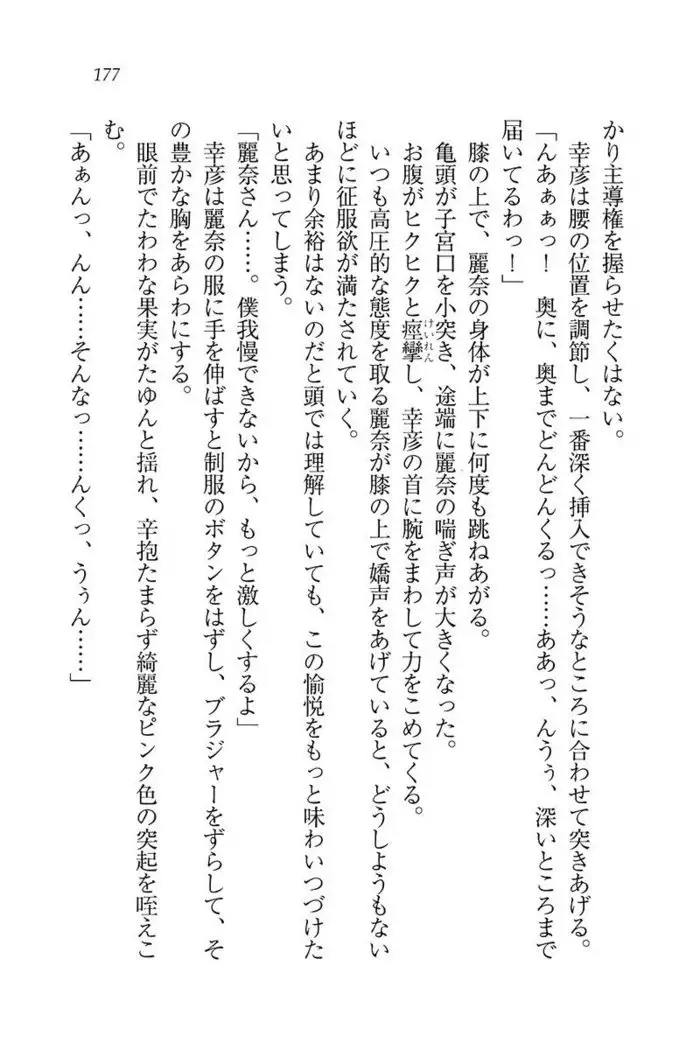 177
かり主導権を握らせたくはない。
幸彦は腰の位置を調節し、一番深く挿入できそうなところに合わせて突きあげる。
「んあぁぁっ！　奥に、奥までどんどんくるっ……ああっ、んうぅ、深いところまで
届いてるわっ！」
膝の上で、麗奈の身体が上下に何度も跳ねあがる。
亀頭が子宮口を小突き、途端に麗奈の喘ぎ声が大きくなった。
お腹がヒクヒクと痙攣（けいれん）し、幸彦の首に腕をまわして力をこめてくる。
いつも高圧的な態度を取る麗奈が膝の上で嬌声をあげていると、どうしようもない
ほどに征服欲が満たされていく。
あまり余裕はないのだと頭では理解していても、この愉悦をもっと味わいつづけた
いと思ってしまう。
「麗奈さん……。僕我慢できないから、もっと激しくするよ」
幸彦は麗奈の服に手を伸ばすと制服のボタンをはずし、ブラジャーをずらして、そ
の豊かな胸をあらわにする。
眼前でたわわな果実がたゆんと揺れ、辛抱たまらず綺麗なピンク色の突起を咥えこ
む。
「あぁんっ、んん……そんなっ……んくっ、うぅん……」